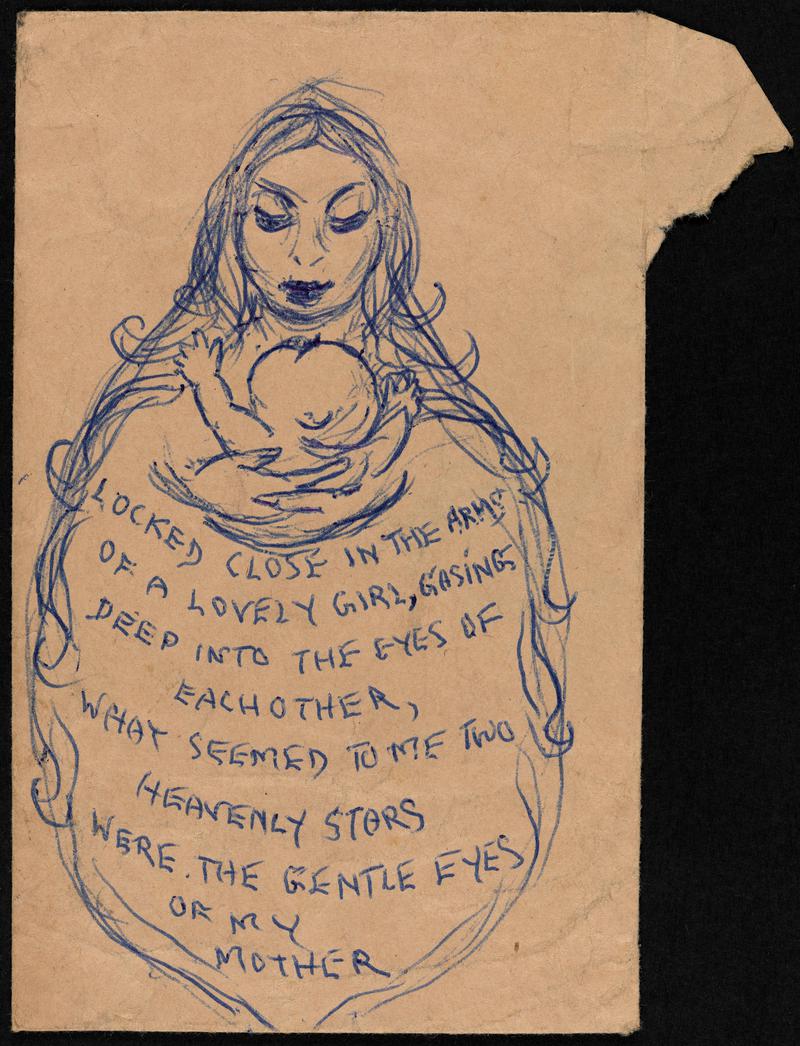 LOCKED CLOSE IN THE ARMS
OF A LOVELY GIRL, GASING
DEEP INTO THE EYES OF
EACHOTHER,
WHAT SEEMED TO ME TWO
HEAVENLY STARS
WERE. THE GENTLE EYES
OF MY
MOTHER